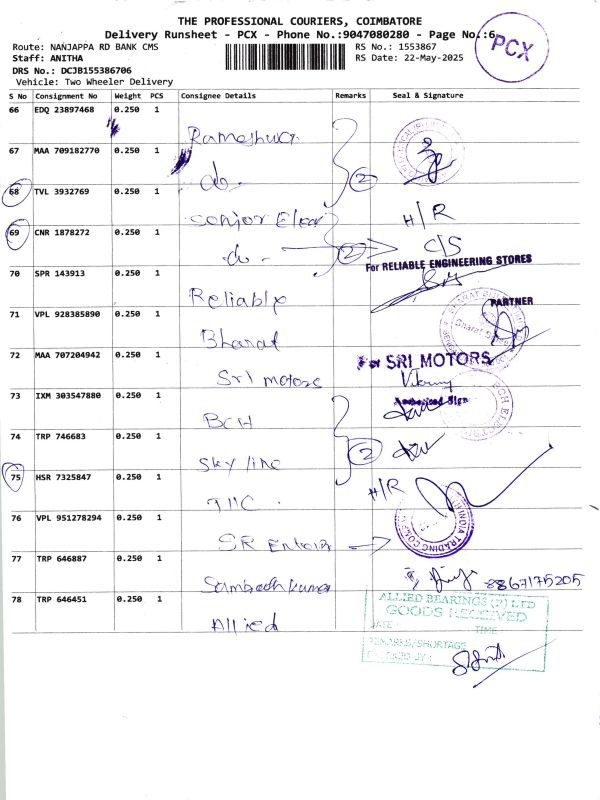 THE PROFESSIONAL COURIERS, COIMBATORE
Delivery Runsheet - PCX - Phone No.:9047080280 - Page No.:6
PCX
Route: NANJAPPA RD BANK CMS
RS No.: 1553867
Staff: ANITHA
RS Date: 22-May-2025
DRS No.: DCJB155386706
Vehicle: Two Wheeler Delivery
S No Consignment No Weight PCS Consignee Details Remarks Seal & Signature
66 EDQ 23897468 0.250 1
Rameshwar
67 MAA 709182770 0.250 1
do.
2
68 TVL 3932769 0.250 1
Senior Elect
H/R
69 CNR 1878272 0.250 1
do.
2
C/S
For RELIABLE ENGINEERING STORES
70 SPR 143913 0.250 1
Reliable
PARTNER
71 VPL 928385890 0.250 1
Bharat
72 MAA 707204942 0.250 1
For SRI MOTORS
Sri motors
73 IXM 303547880 0.250 1
Authorised Sign
BCH
74 TRP 746683 0.250 1
Sky line
2
75 HSR 7325847 0.250 1
H/R
TIIC
76 VPL 951278294 0.250 1
INDIA TRADING
SR
77 TRP 646887 0.250 1
8867175205
78 TRP 646451 0.250 1
Allied
ALLIED BEARINGS (P) LTD
GOODS RECEIVED
DATE: TIME
REMARKS/SHORTAGE